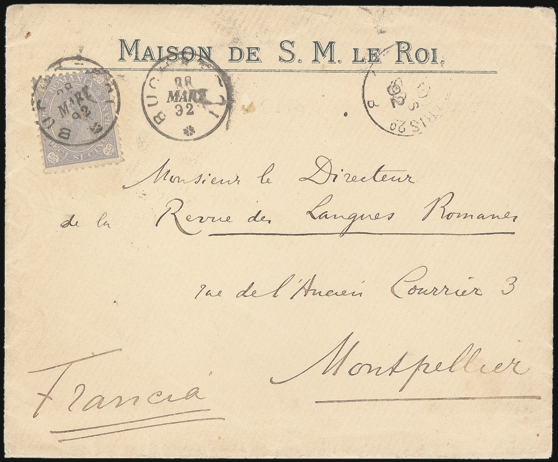 MAISON DE S. M. LE ROI.
28
MART
92
BUCURESCI
28
MART
92
PARIS
92
Monsieur le Directeur
de la Revue des Langues Romanes
rue de l'Ancien Courrier 3
Montpellier
Francia